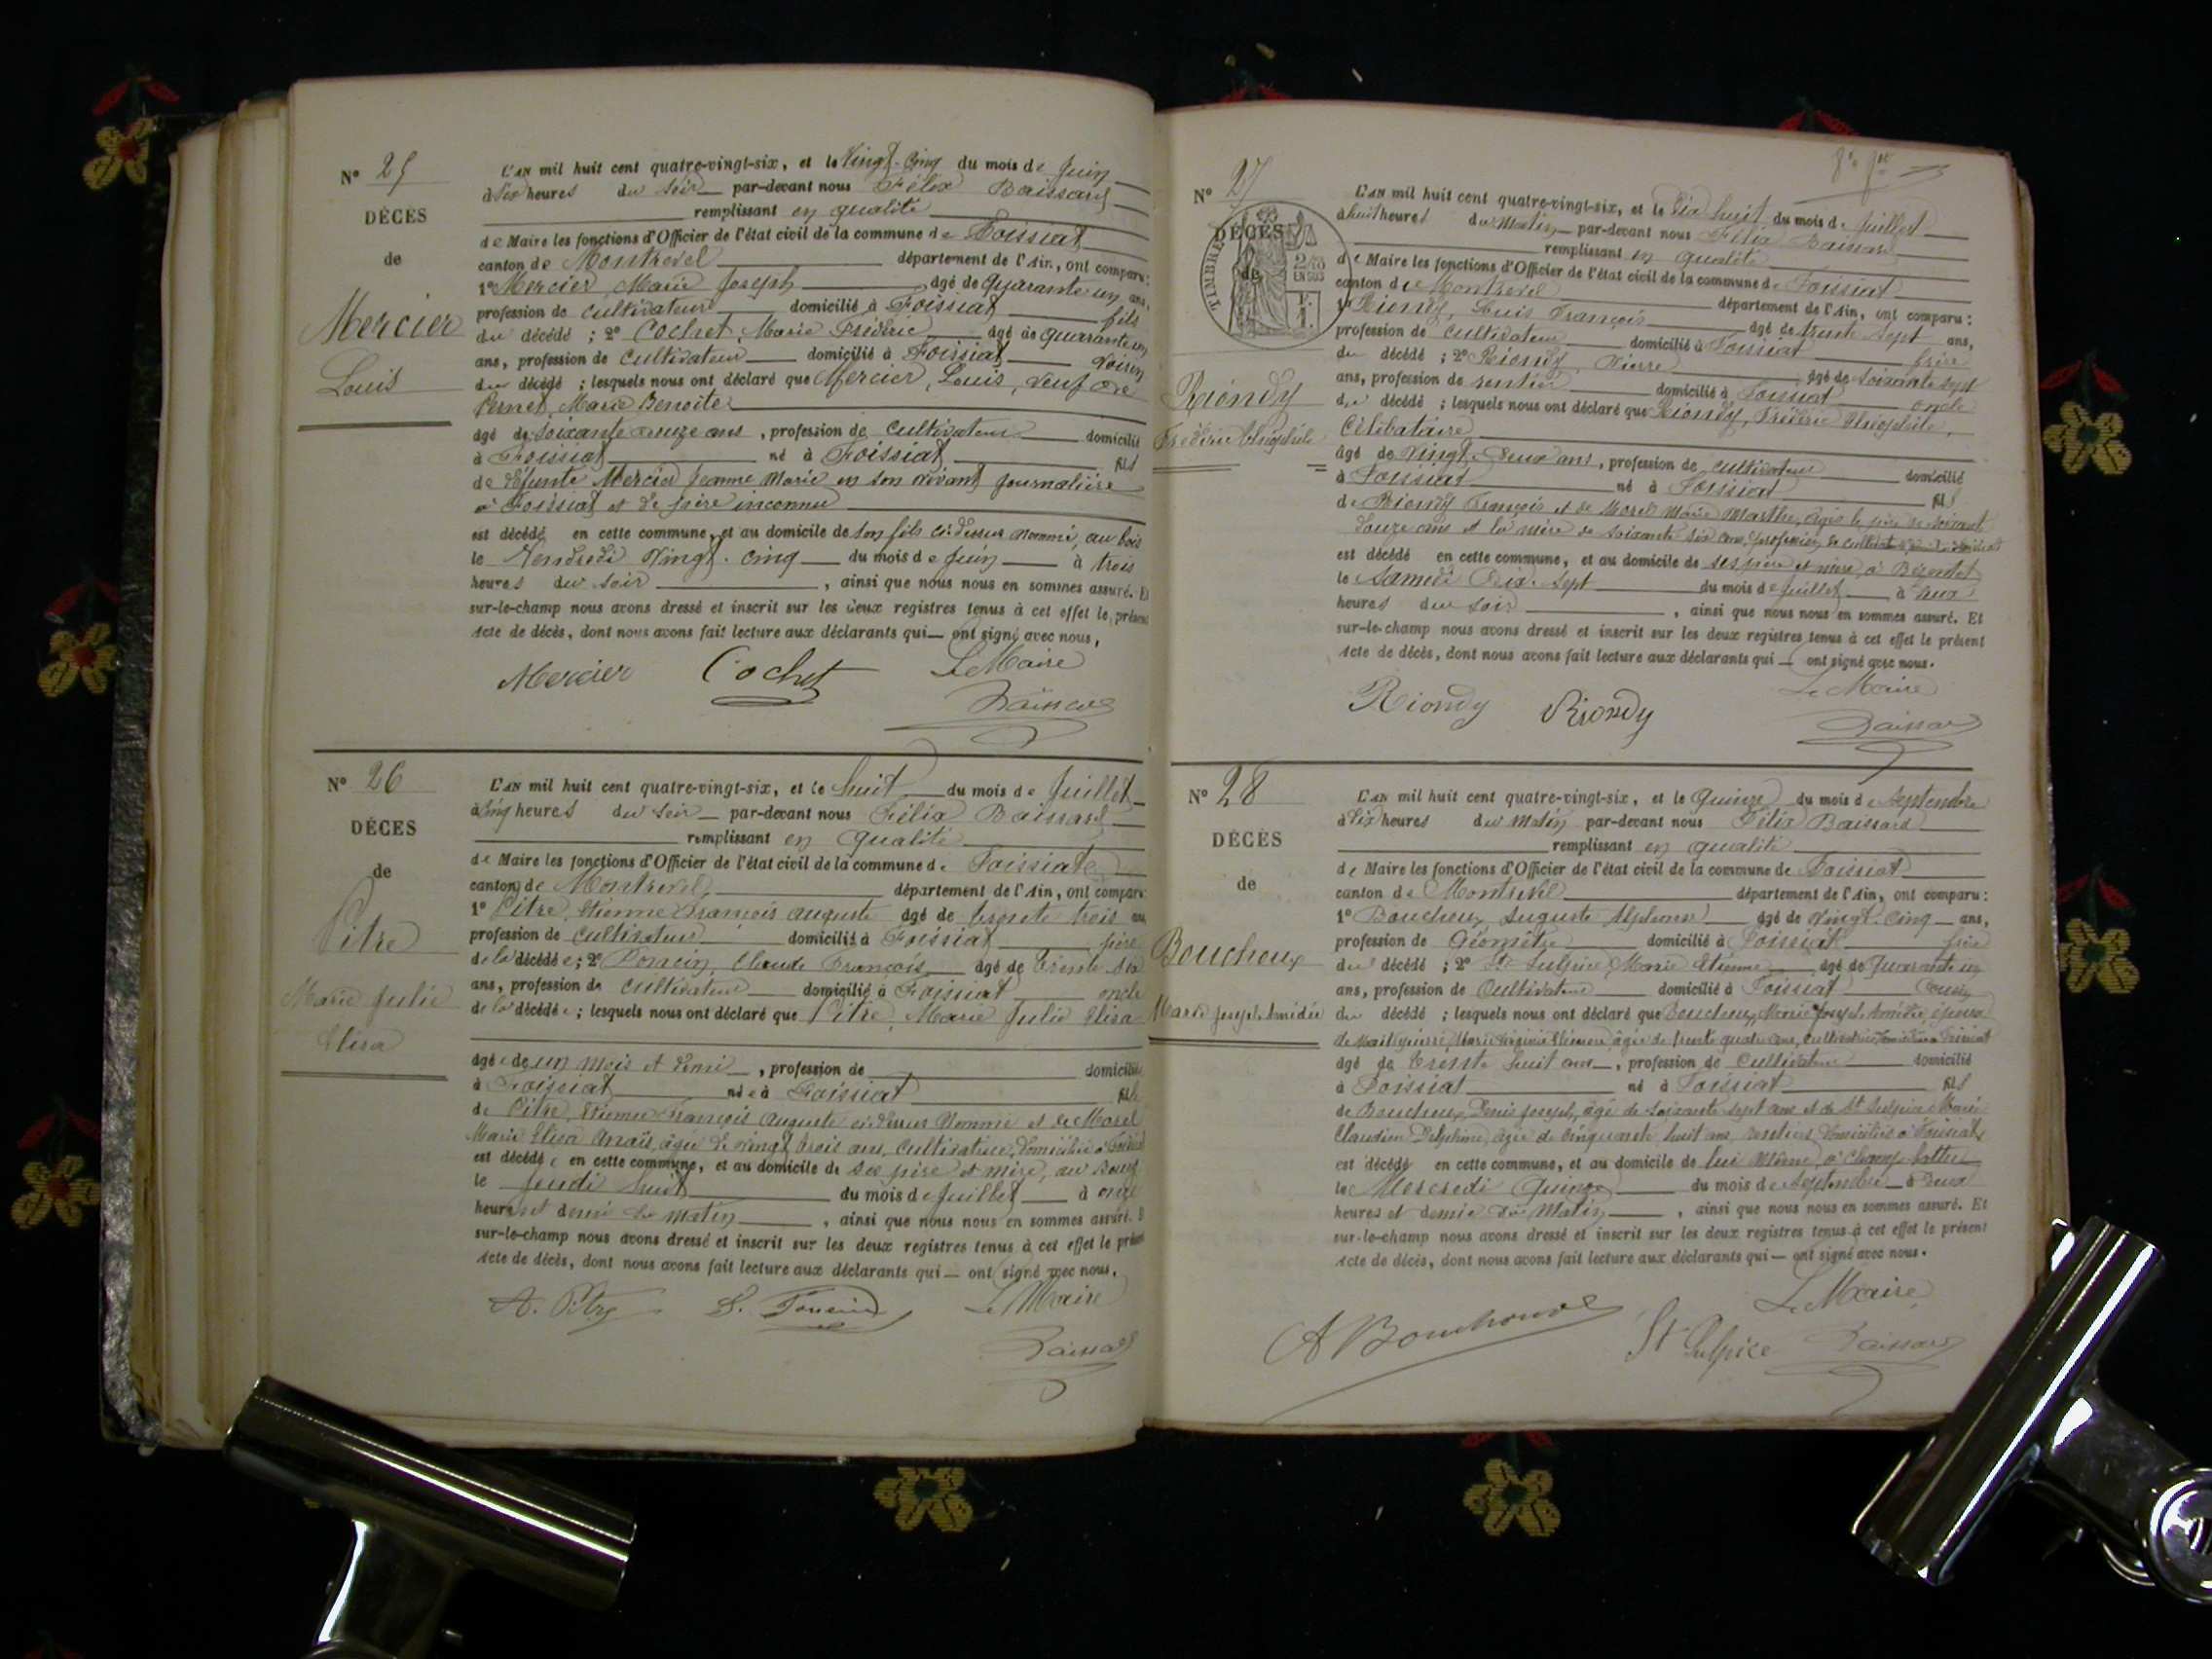 N° 25
DÉCÈS
de
Mercier
Louis
L'AN mil huit cent quatre-vingt-six, et le Vingt-Cinq du mois de Juin
à Six heures du soir par-devant nous Félix Baissard
remplissant en qualité
de Maire les fonctions d'Officier de l'état civil de la commune de Foissiat
canton de Montrevel département de l'Ain, ont comparu:
1° Mercier Marie Joseph âgé de quarante un ans,
profession de cultivateur domicilié à Foissiat fils
du décédé ; 2° Cochet, Marie Frédéric âgé de quarante un
ans, profession de cultivateur domicilié à Foissiat voisin
du décédé ; lesquels nous ont déclaré que Mercier, Louis, veuf de
Pernet, Marie Benoite
âgé de soixante onze ans, profession de cultivateur domicilié
à Foissiat né à Foissiat fils
de défunte Mercier Jeanne Marie en son vivant journalière
à Foissiat et de père inconnu
est décédé en cette commune, et au domicile de son fils ci-dessus nommé, au bois
le Vendredi Vingt-cinq du mois de Juin à trois
heures du soir , ainsi que nous nous en sommes assuré. Et
sur-le-champ nous avons dressé et inscrit sur les deux registres tenus à cet effet le présent
acte de décès, dont nous avons fait lecture aux déclarants qui — ont signé avec nous,
Mercier Cochet Le Maire
Baissard
N° 26
DÉCÈS
de
Pitre
Marie Julie
Elisa
L'AN mil huit cent quatre-vingt-six, et le huit du mois de Juillet
à Cinq heures du soir par-devant nous Félix Baissard
remplissant en qualité
de Maire les fonctions d'Officier de l'état civil de la commune de Foissiat
canton de Montrevel département de l'Ain, ont comparu
1° Pitre, Etienne François Auguste âgé de trente trois ans
profession de cultivateur domicilié à Foissiat père
de la décédée ; 2° Poncin, Claude François âgé de trente six
ans, profession de cultivateur domicilié à Foissiat oncle
de la décédée ; lesquels nous ont déclaré que Pitre, Marie Julie Elisa
âgée de un mois et demi , profession de domicilié
à Foissiat née à Foissiat fille
de Pitre, Etienne François Auguste ci-dessus nommé et de Morel
Marie Elisa Anaïs, âgée de vingt trois ans, cultivatrice, domiciliée à Foissiat
est décédée en cette commune, et au domicile de ses père et mère, au Bourg
le Jeudi huit du mois de Juillet à onze
heures et demie du matin , ainsi que nous nous en sommes assuré. E
sur-le-champ nous avons dressé et inscrit sur les deux registres tenus à cet effet le présent
acte de décès, dont nous avons fait lecture aux déclarants qui — ont signé avec nous.
A. Pitre Le Maire
Baissard
N° 27
DÉCÈS
de
TIMBRE
2/10
EN SUS
Riondy
Frédéric Théophile
L'AN mil huit cent quatre-vingt-six, et le Dix huit du mois de Juillet
à huit heures du Matin par-devant nous Félix Baissard
remplissant en qualité
de Maire les fonctions d'Officier de l'état civil de la commune de Foissiat
canton de Montrevel département de l'Ain, ont comparu :
1° Riondy, Louis François âgé de trente sept ans,
profession de cultivateur domicilié à Foissiat frère
du décédé ; 2° Riondy, Pierre âgé de soixante sept
ans, profession de rentier domicilié à Foissiat oncle
du décédé ; lesquels nous ont déclaré que Riondy, Frédéric Théophile,
Célibataire
âgé de Vingt-deux ans, profession de cultivateur domicilié
à Foissiat né à Foissiat fils
de Riondy François et de Morel Marie Marthe, âgés le père de soixante
douze ans et la mère de soixante six ans, profession de
est décédé en cette commune, et au domicile de ses père et mère, à
le Samedi Dix-Sept du mois de Juillet à deux
heures du soir , ainsi que nous nous en sommes assuré. Et
sur-le-champ nous avons dressé et inscrit sur les deux registres tenus à cet effet le présent
acte de décès, dont nous avons fait lecture aux déclarants qui — ont signé avec nous.
Riondy Riondy Le Maire
Baissard
N° 28
DÉCÈS
de
Bouchoux
Marie Joseph Amédée
L'AN mil huit cent quatre-vingt-six, et le Quinze du mois de Septembre
à Dix heures du matin par-devant nous Félix Baissard
remplissant en qualité
de Maire les fonctions d'Officier de l'état civil de la commune de Foissiat
canton de Montrevel département de l'Ain, ont comparu :
1° Bouchoux, Auguste Alphonse âgé de Vingt-Cinq ans,
profession de Géomètre domicilié à Foissiat frère
du décédé ; 2° St Sulpice, Marie Etienne âgé de Quarante un
ans, profession de Cultivateur domicilié à Foissiat Cousin
du décédé ; lesquels nous ont déclaré que Bouchoux, Marie Joseph Amédée, époux
de Marie âgée de trente quatre ans, cultivatrice, domiciliée à Foissiat
âgé de Trente huit ans, profession de cultivateur domicilié
à Foissiat né à Foissiat fils
de Bouchoux, Denis Joseph, âgé de soixante sept ans et de St Sulpice Marie
Claudine Delphine, âgée de cinquante huit ans, rentiers, domiciliés à Foissiat
est décédé en cette commune, et au domicile de lui même, à Champ-battu
le Mercredi Quinze du mois de Septembre à deux
heures et demie du Matin , ainsi que nous nous en sommes assuré. Et
sur-le-champ nous avons dressé et inscrit sur les deux registres tenus à cet effet le présent
acte de décès, dont nous avons fait lecture aux déclarants qui — ont signé avec nous.
Le Maire
A Bouchoux St Sulpice Baissard